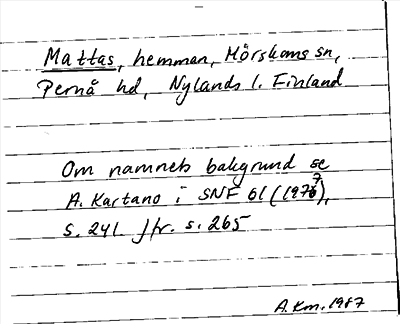 Mattas, hemman, Mörskoms sn,
Pernå hd, Nylands l. Finland
Om namnets bakgrund se
A. Kartano i SNF 61 (1977),
s. 241 jfr. s. 265
A. Km. 1987